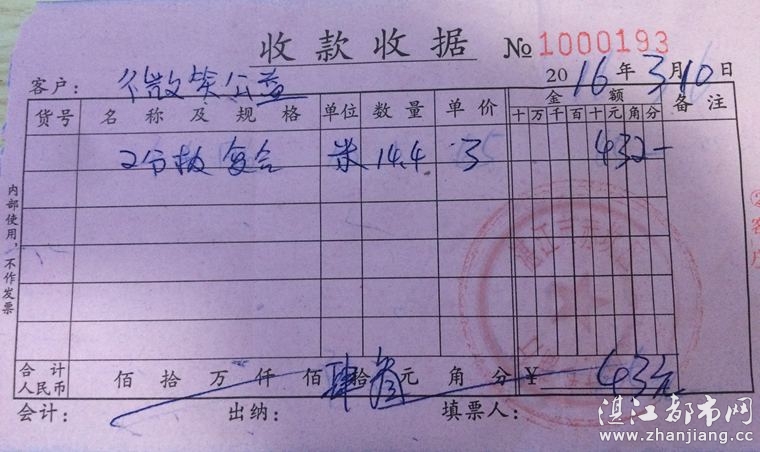 收款收据 № 1000193
客户： 微笑公益 2016年3月10日
货号 名称及规格 单位 数量 单价 金额 备注
十万千百十元角分
2分板 复合 米 14.4 3 432-
内部使用，不作发票
合计人民币 佰拾万仟佰肆拾叁元角分 ¥ 43元
会计： 出纳： 填票人：
湛江都市网
www.zhanjiang.cc